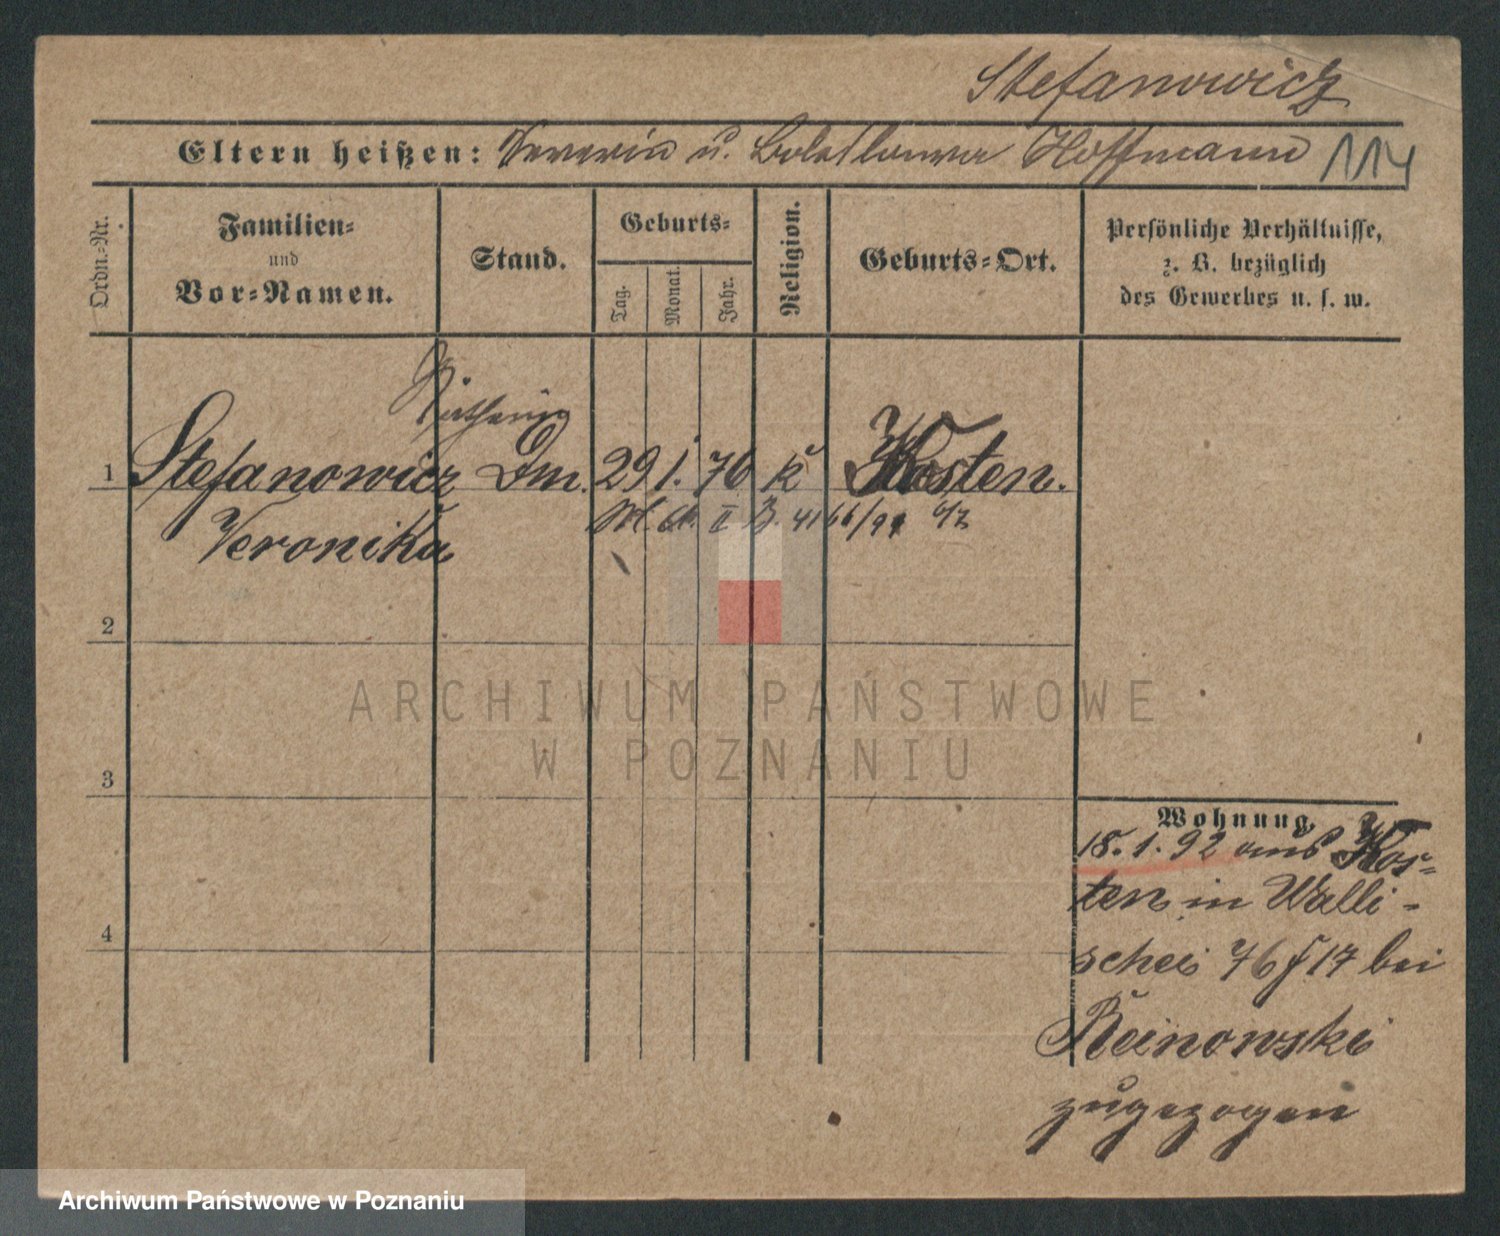 Stefanowicz
Eltern heißen: Severin u. Boleslawa Hoffmann 114
Ordn.-Nr.
Familien- und Vor-Namen.
Stand.
Geburts-
Tag.
Monat.
Jahr.
Religion.
Geburts-Ort.
Persönliche Verhältnisse,
z. B. bezüglich
des Gewerbes u. s. w.
1 Stefanowicz 29 1. 76 k Kosten.
Veronika
II B. 4166/91
2
3
4
Wohnung.
18.1.92 aus Kos-
ten in Walli-
schei 76 17 bei
zugezogen
ARCHIWUM PAŃSTWOWE
W POZNANIU
Archiwum Państwowe w Poznaniu